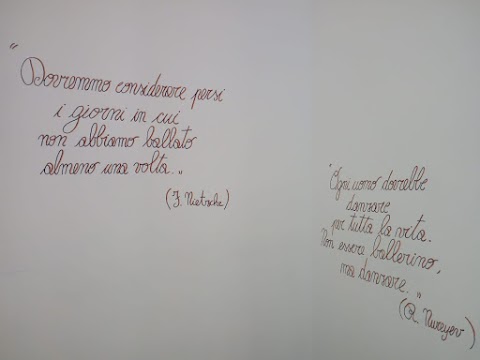 "Dovremmo considerare persi
i giorni in cui
non abbiamo ballato
almeno una volta."
(F. Nietzsche)
"Ogni uomo dovrebbe
danzare
per tutta la vita.
Non essere ballerino,
ma danzare."
(R. Nureyev)